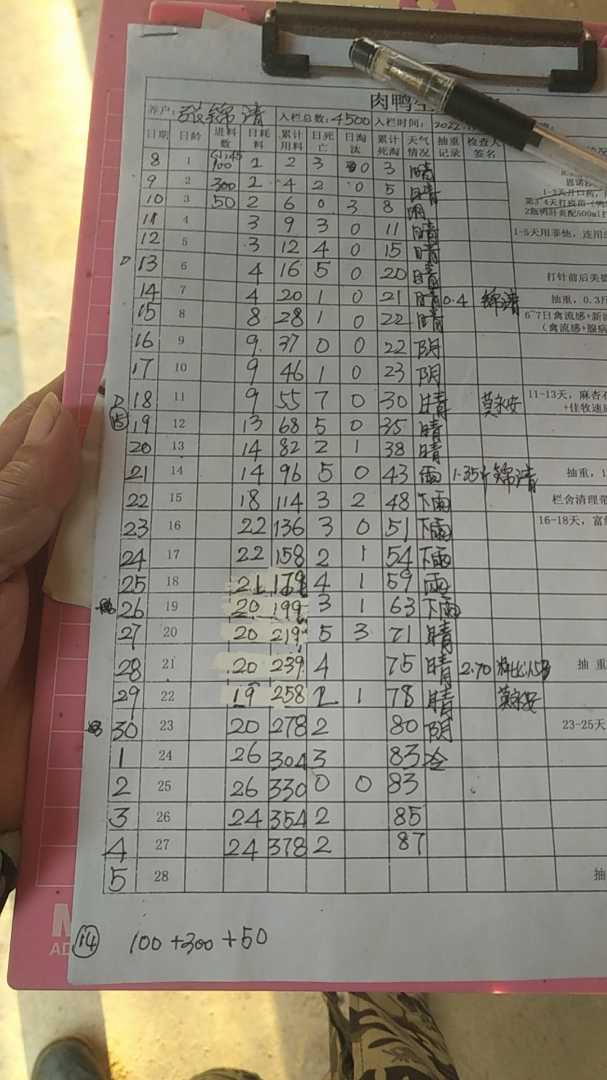 肉鸭
养户: 张锦清 入栏总数: 4500 入栏时间: 2022
日期 日龄 进料数 日耗料 累计用料 日死亡 日淘汰 累计死淘 天气情况 抽重记录 检查人签名
8 1 100 2 2 3 0 3 晴
9 2 300 2 4 2 0 5 晴
10 3 50 2 6 0 3 8 阴
11 4 3 9 3 0 11 晴 1-5天用
12 5 3 12 4 0 15 晴
13 6 4 16 5 0 20 晴 打针前后
14 7 4 20 1 0 21 晴 0.4 锦清 抽重,
15 8 8 28 1 0 22 晴 6-7日禽流感+新
16 9 9 37 0 0 22 阴 (禽流感+腺病
17 10 9 46 1 0 23 阴
18 11 9 55 7 0 30 晴 莫永安 11-13天, 麻杏
19 12 13 68 5 0 35 晴
20 13 14 82 2 1 38 晴
21 14 14 96 5 0 43 雨 1.35 锦清 抽重,
22 15 18 114 3 2 48 下雨 栏舍清理
23 16 22 136 3 0 51 下雨 16-18天,
24 17 22 158 2 1 54 下雨
25 18 21 179 4 1 59 雨
26 19 20 199 3 1 63 下雨
27 20 20 219 5 3 71 晴
28 21 20 239 4 75 晴 2.70 抽重
29 22 19 258 2 1 78 晴 莫永安
30 23 20 278 2 80 阴 23-25天
1 24 26 304 3 83 冷
2 25 26 330 0 0 83
3 26 24 354 2 85
4 27 24 378 2 87
5 28 抽
14 100+300+50